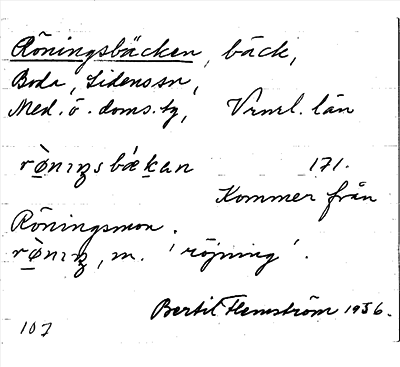 Röningsbäcken, bäck,
Boda, Lidens sn,
Med. ö. doms. tg, Vrnrl. län
rø̀nıŋsbækan 171.
Kommer från
Röningsmon.
rø̀nıŋ, m. 'röjning'.
Bertil Flemström 1936.
107